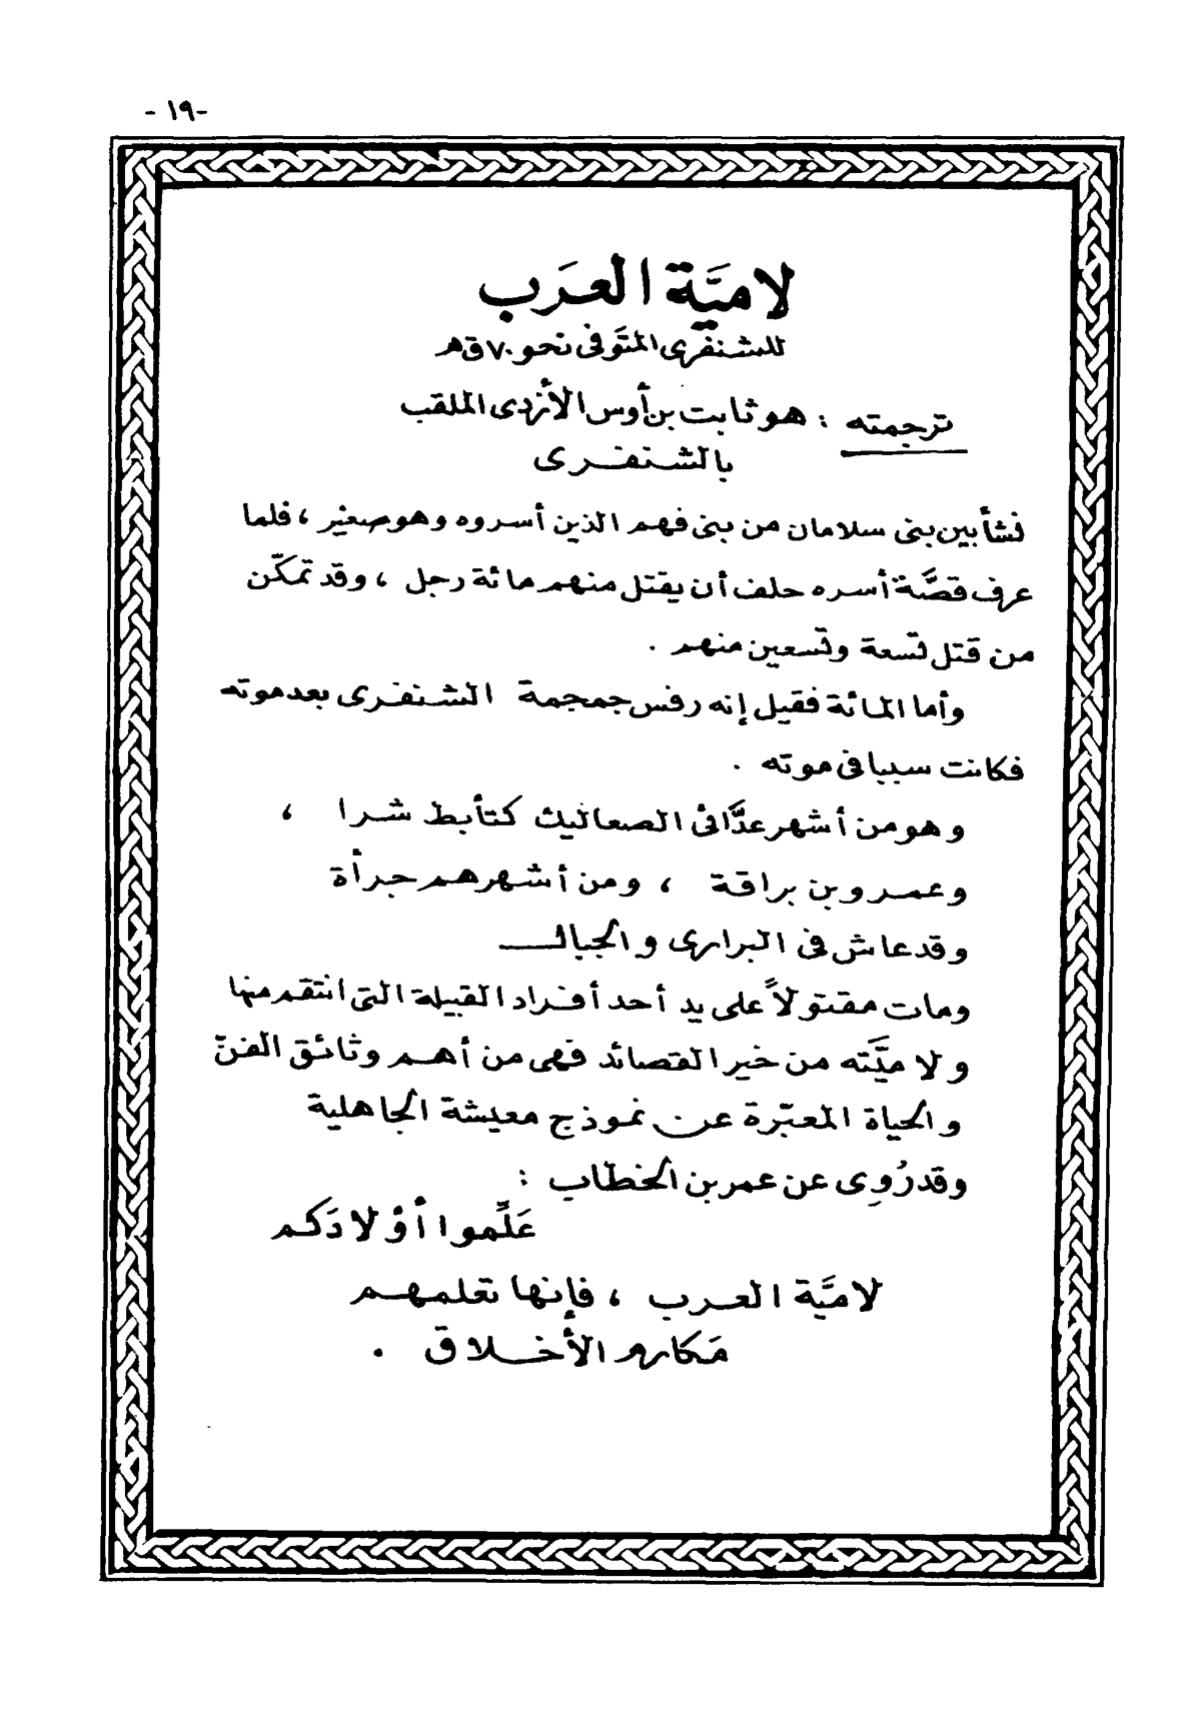 -١٩ -
لاميَّة العَرَب
للشنفرى المتَوفى نحو ٧٠ ق هـ
ترجمته : هو ثابت بن أوس الأزدى الملقب
بالشنفرى
نشأ بين بنى سلامان من بنى فهم الذين أسروه وهو صغير ، فلما
عرف قصَّة أسره حلف أن يقتل منهم مائة رجل ، وقد تمكّن
من قتل تسعة وتسعين منهم .
وأما المائة فقيل إنه رفس جمجمة الشنفرى بعد موته
فكانت سببا فى موته .
وهو من أشهر عدَّائى الصعاليك كتأبط شرا ،
وعمرو بن براقة ، ومن أشهرهم جرأة
وقد عاش فى البرارى والجبال
ومات مقتولاً على يد أحد أفراد القبيلة التى انتقم منها
ولا ميَّته من خير القصائد فهى من أهم وثائق الفنّ
والحياة المعبّرة عن نموذج معيشة الجاهلية
وقد رُوِى عن عمر بن الخطاب :
عَلِّموا أوْلادَكم
لاميَّة العرب ، فإنها تعلمهم
مَكارم الأخلاق .